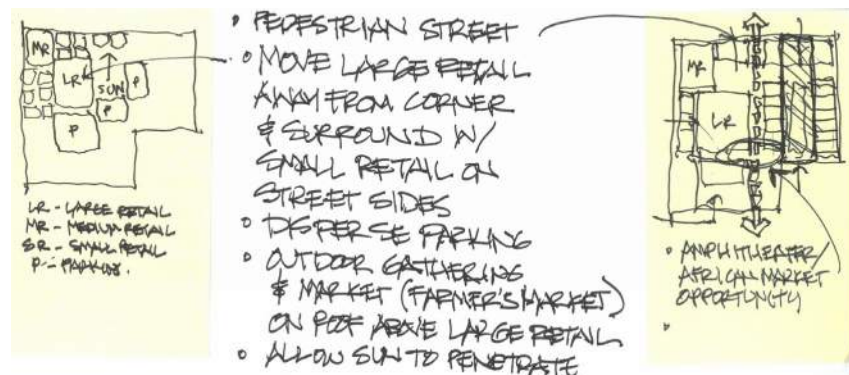 MR
LR
SUN
P
P
P
LR - LARGE RETAIL
MR - MEDIUM RETAIL
SR - SMALL RETAIL
P - PARKING.
• PEDESTRIAN STREET
• MOVE LARGE RETAIL
AWAY FROM CORNER
& SURROUND W/
SMALL RETAIL ON
STREET SIDES
• DISPERSE PARKING
• OUTDOOR GATHERING
& MARKET (FARMER'S MARKET)
ON ROOF ABOVE LARGE RETAIL
• ALLOW SUN TO PENETRATE
MR
LR
• AMPHITHEATER/
AFRICAN MARKET
OPPORTUNITY
•